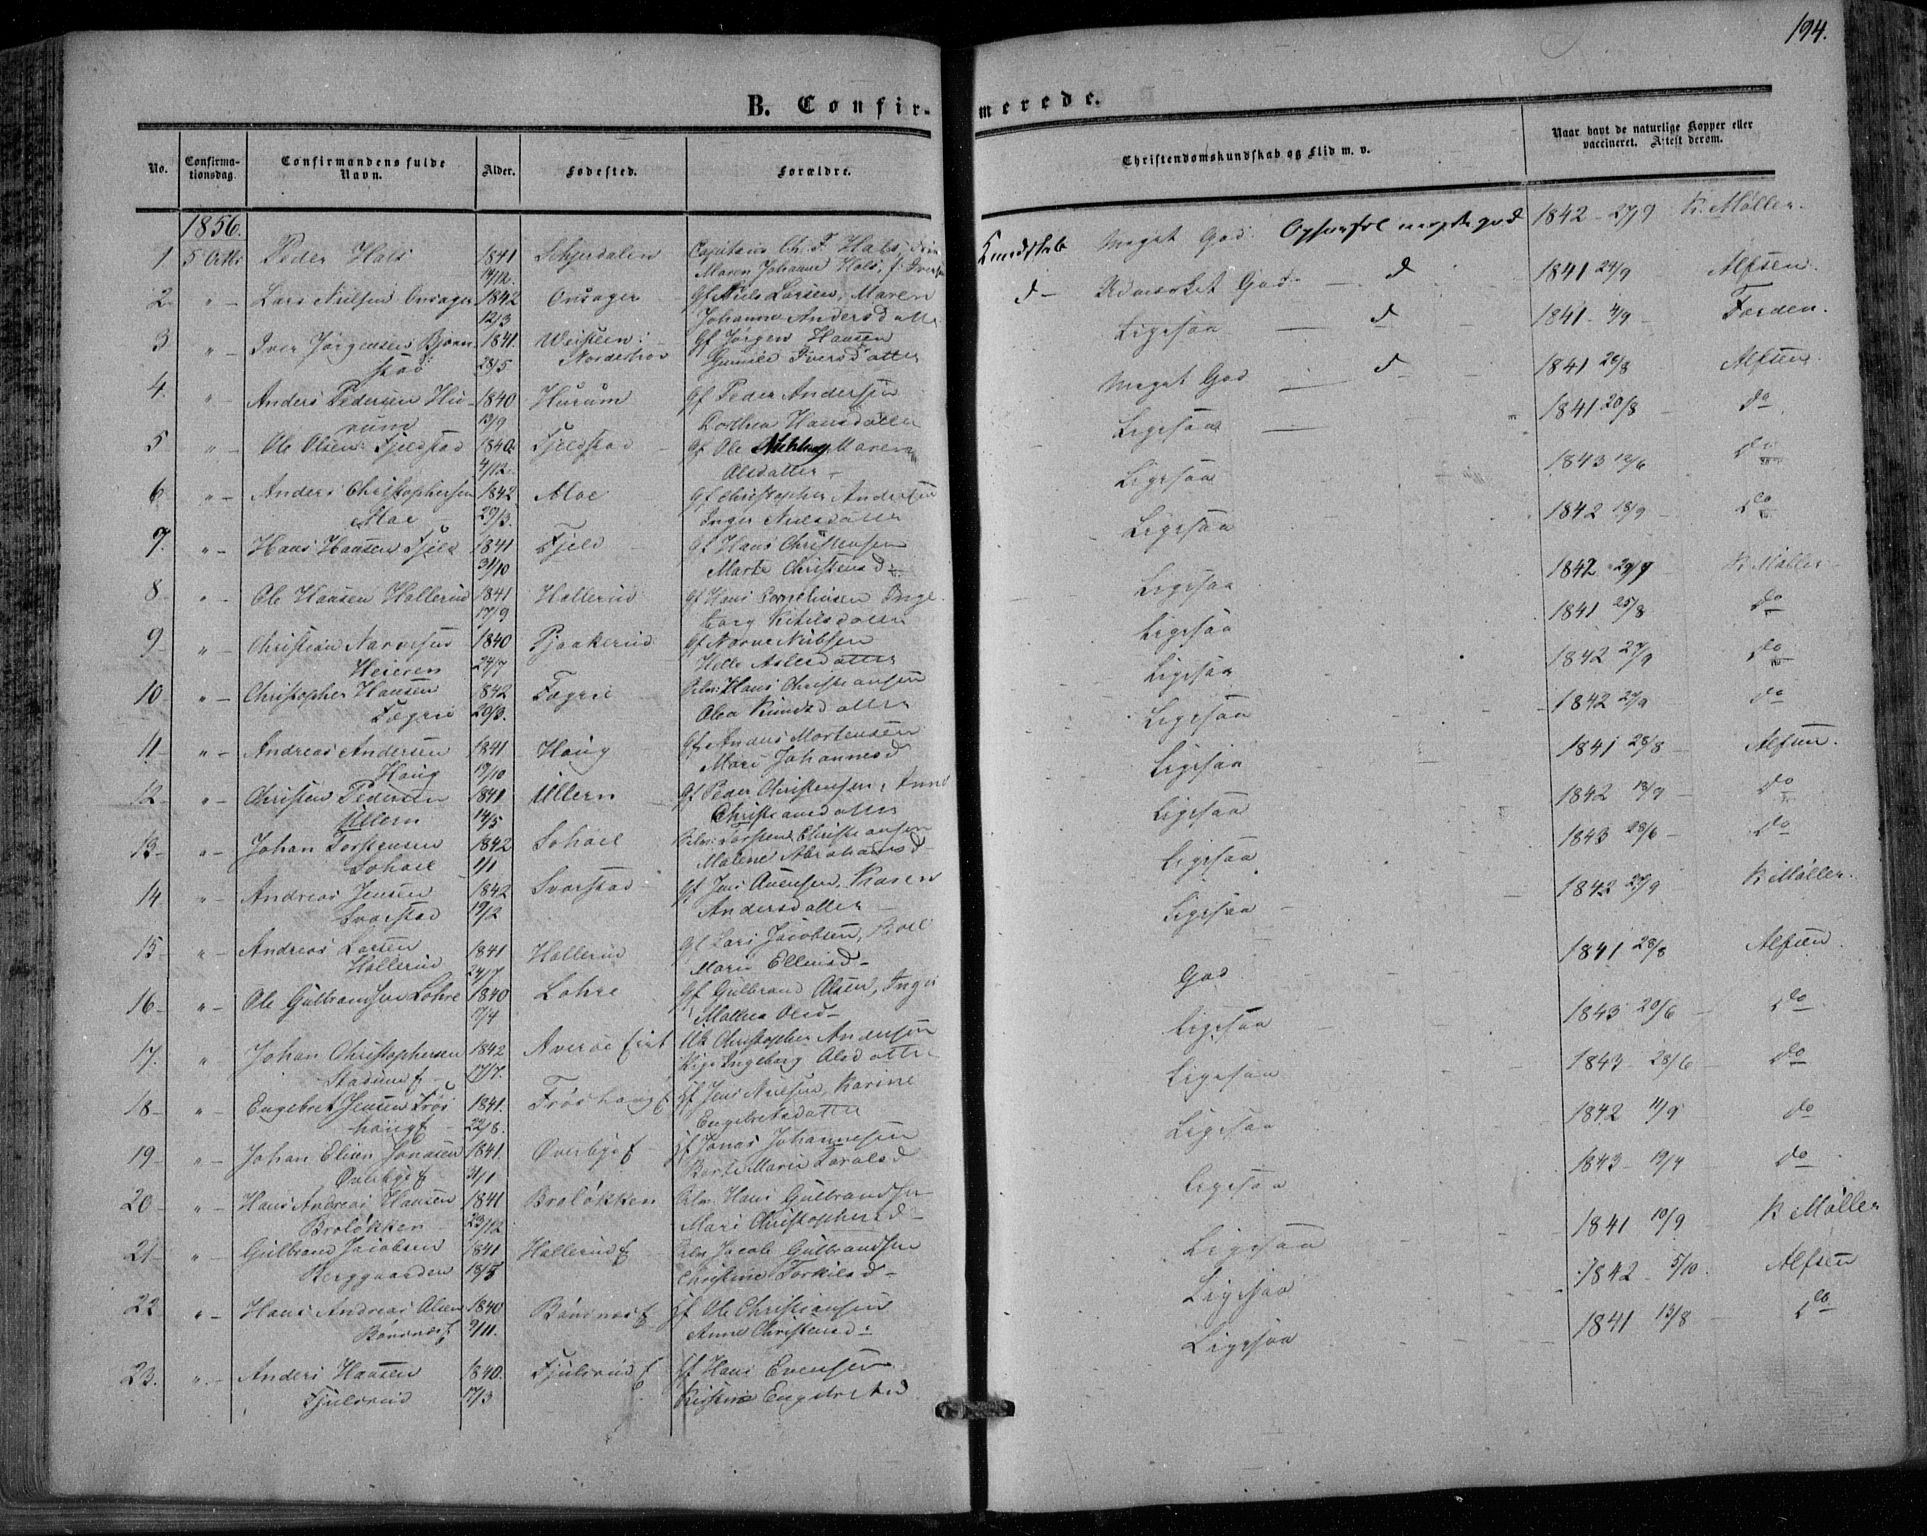 194.
B. Confirmerede.
No. Confirmationsdag. Confirmandens fulde Navn. Alder. Fødested. Forældre. Christendomskundskab og Flid m. v. Naar havt de naturlige Kopper eller vaccineret. Attest derom.
1856.
1. 5 Octbr Peder Hals 1841 14/12. Capitain Ch. F. Hals, Maren Johanne Hals, f. Kundskab Meget God. Opførsel meget god 1842 27/9 K. Møller.
2 " Lars Nielsen Onsager 1842 12/3 Onsager Gf Niels Larsen, Maren Johanne Andersdatter d Udmærket God d 1841 24/9 Alfsen.
3 " Iver Jørgensen Bjørnstad 1841. 28/5 Norderhov Gf Jørgen Hansen Gunild Iversdatter Ligesaa d 1841 4/9 Forden.
4. " Anders Pedersen Hurum 1840 13/9 Hurum Gf Peder Andersen Dorthea Hansdatter Meget God d 1841 28/8 Alfsen
5 " Ole Olsen Fjeldstad 1840 4/12. Fjeldstad Gf Ole Maren Olsdatter Ligesaa 1841 20/8 do
6 " Anders Christophersen Moe 1842 29/3. Moe Gf Christopher Andersen Inger Nielsdatter Ligesaa 1843 12/6 do
7. " Hans Hansen Fjeld 1841 31/10 Fjeld Gf Hans Christensen Marte Christensd Ligesaa 1842 18/9 do
8 " Ole Hansen Hallerud 1841 17/9 Hallerud Gf Hans Ingeborg Kittilsdatter Ligesaa 1842 29/9 K Møller
9 " Christian Narvesen Heieren 1840 24/7 Gf Narve Nielsen Helle Aslesdatter Ligesaa 1841 25/8 do
10 " Christopher Hansen Fægrie 1842 20/3. Fægrie Hans Christiansen Olea Knudsdatter Ligesaa 1842 27/9 do
11 " Andreas Andersen Haug 1841 19/10 Haug Gf Anders Mortensen Mari Johannesd Ligesaa 1842 27/9 do
12 " Christen Pedersen Ullern 1841 14/5 Ullern Gf Peder Christensen, Anne Christiansdatter Ligesaa 1841 28/8 Alfsen.
13 " Johan Torstensen Sohoel 1842 1/1 Sohoel Torsten Christiansen Malene Abrahamsd Ligesaa 1842 18/9 do
14 " Andreas Jensen Svarstad 1842 19/2 Svarstad Gf Jens Evensen, Karen Andersdatter Ligesaa 1843 28/6 do
15 " Andreas Larsen Hallerud 1841 24/7 Hallerud Gf Lars Jacobsen, Marie Ellensd Ligesaa 1842 27/9 K Møller.
16 " Ole Gulbrandsen Lohre 1840 7/4 Lohre Gf Gulbrand Olsen, Inger Mathea Olsd God 1841 28/8 Alfsen
17. " Johan Christophersen 1842 17/7. Christopher Andersen Ingeborg Olsdatter Ligesaa 1843 20/6 do
18 " Engebret Jensen Frøshaug 1841. 22/8. Frøshaug Gf Jens Nielsen, Karine Engebretsdatter Ligesaa 1843 28/6 do
19 " Johan Elisen Jonasen Overbye 1841. 31/1 Overbye Jonas Johannesen Marie Ligesaa 1842 11/9 do
20 " Hans Andreas Hansen Broløkken 1841 23/12 Broløkken Hans Gulbrandsen Mari Christophersd Ligesaa 1843 19/4 do
21 " Gulbrand Jacobsen Berggaarden 1841 18/5 Hallerud Jacob Gulbrandsen Christine Torkilsd Ligesaa 1841 10/9 K Møller
22 " Hans Andreas Olsen Bønsnes 1840 9/11. Bønsnes Ole Christiansen Anne Christensd Ligesaa 1842 5/10 Alfsen
23. " Anders Hansen Fjulsrud 1840. 17/3 Fjulsrud Hans Evensen Kristine Engebretsd Ligesaa 1841 13/8 do